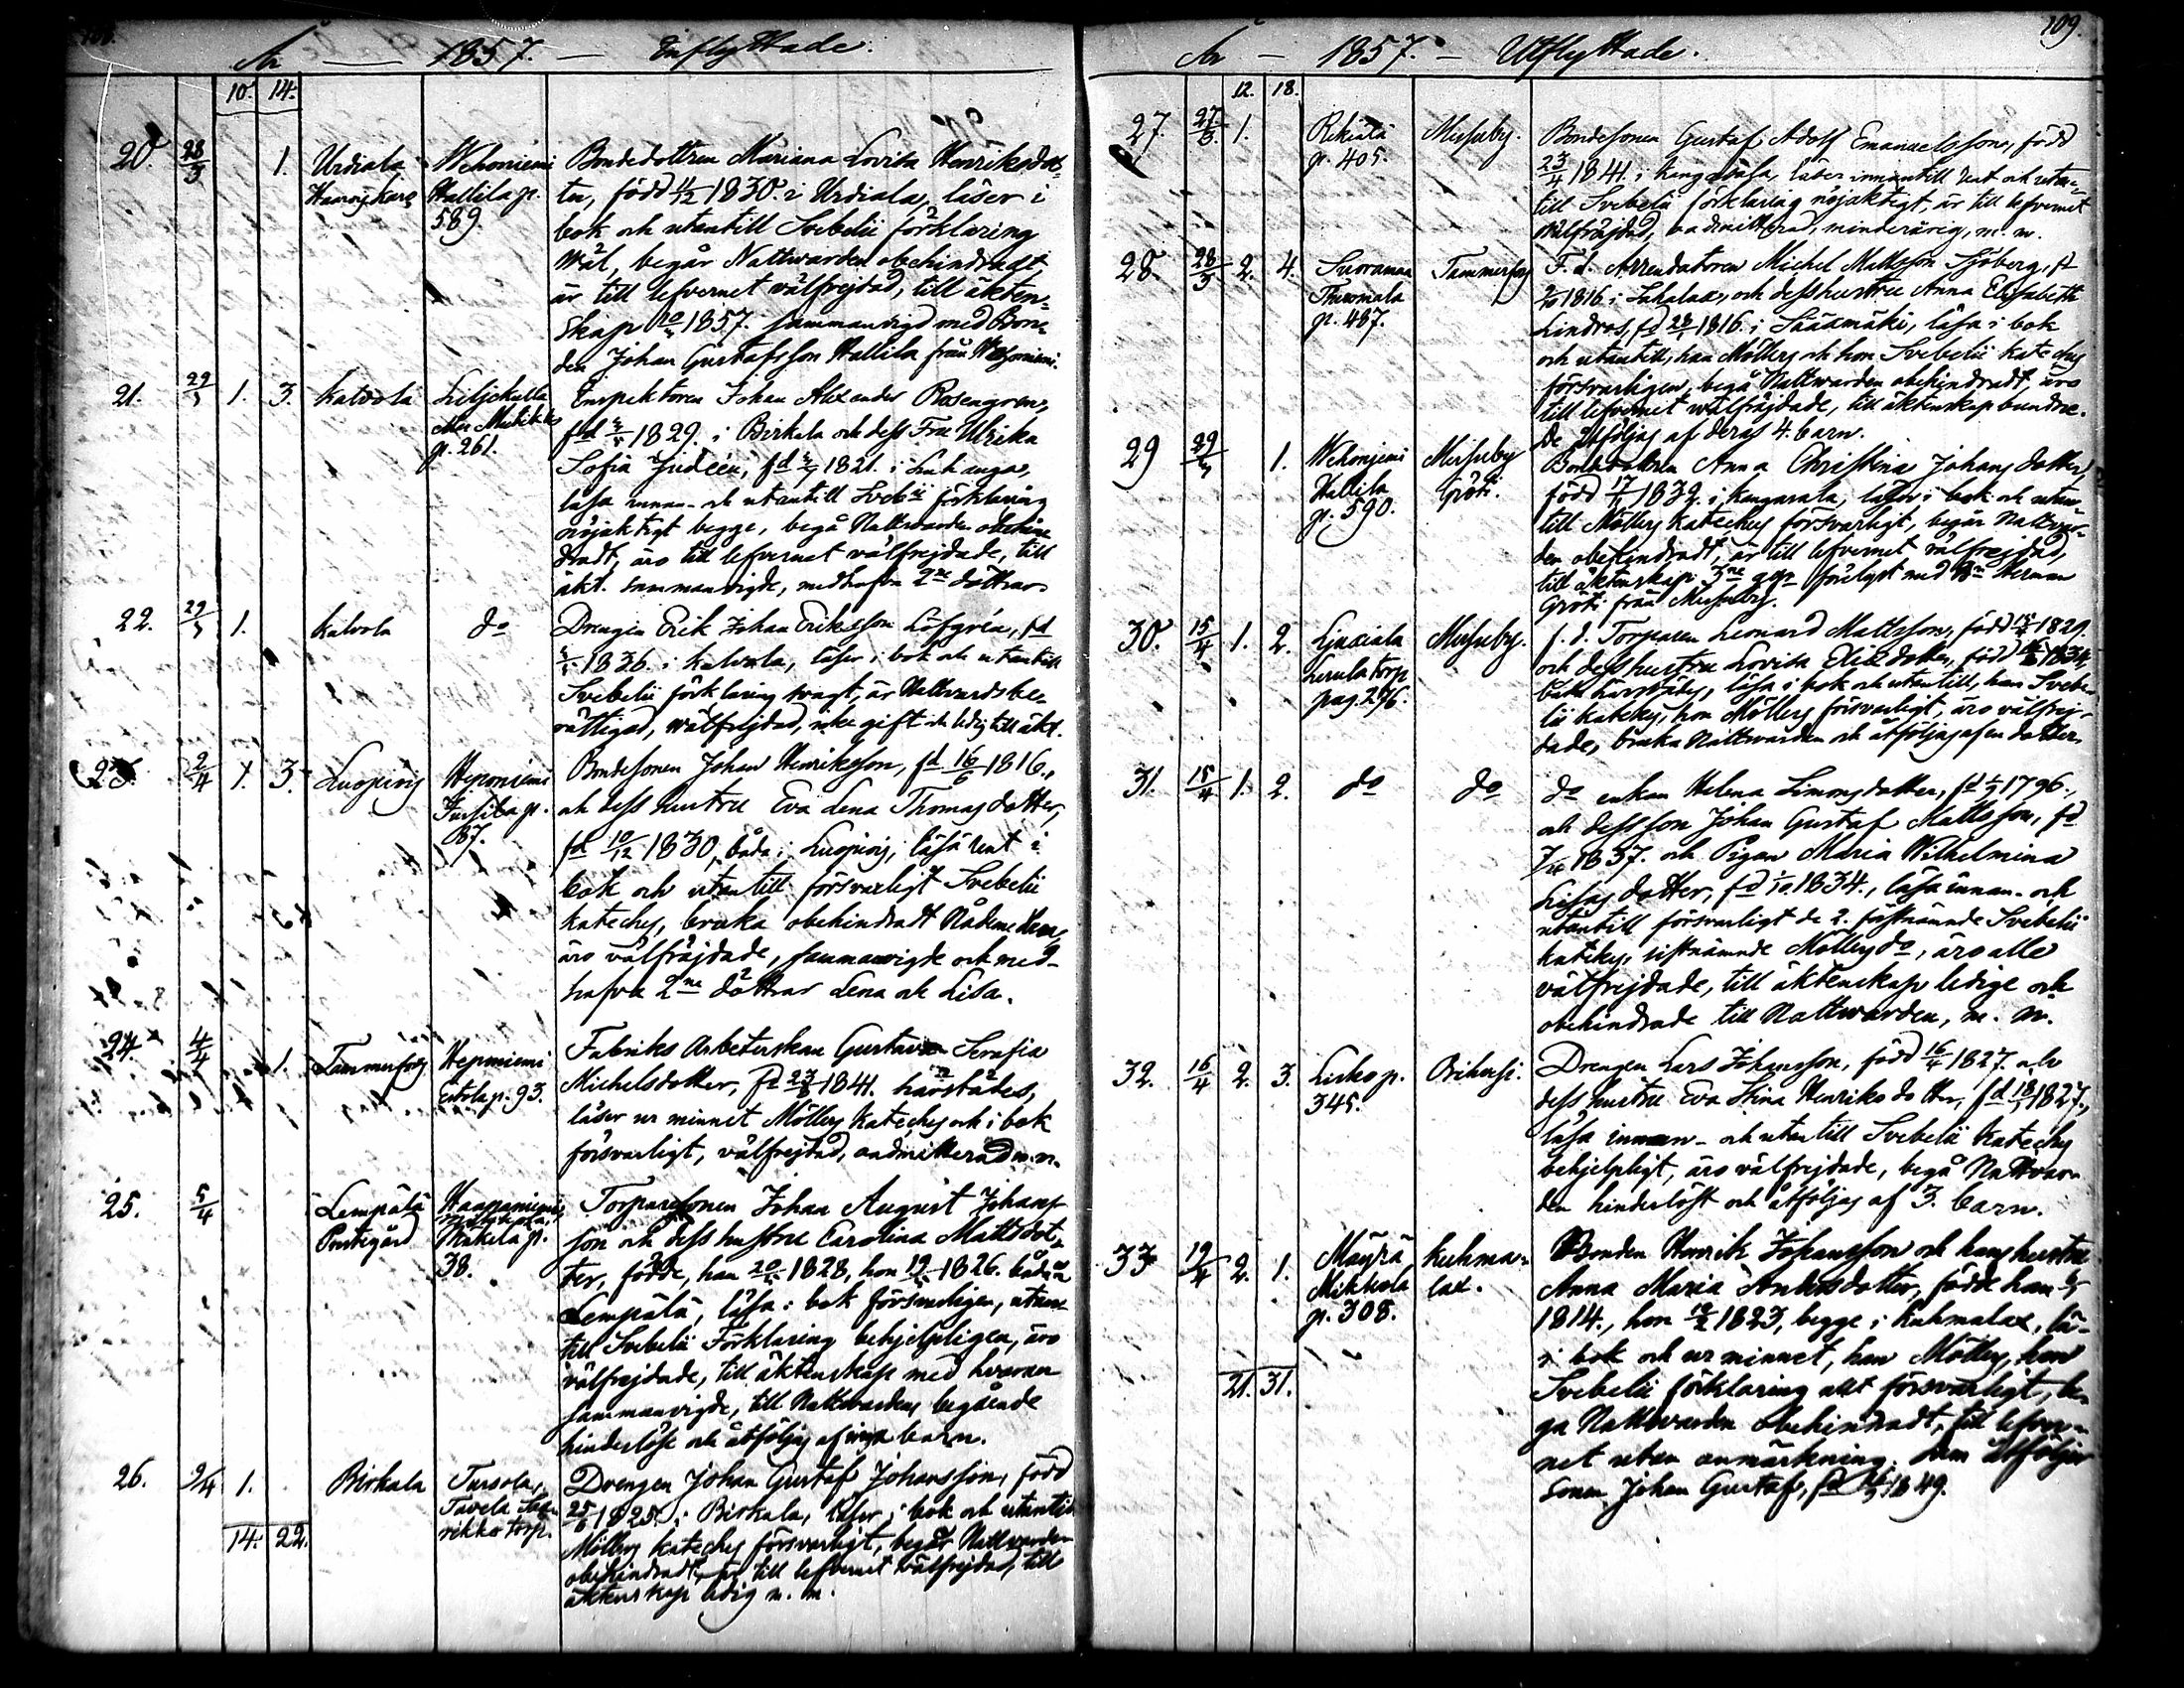 År — 1857. — Inflyttade.
10. 14.
20. 28/3 1. Urdiala Wehoniemi Hallila p. 589.
Bondedottren Mariana Lovisa Henriksdot-
ter, född 11/12 1830 i Urdiala, läser i
bok och utantill Svebelii förklaring
wäl, begår Nattwarden obehindradt
är till lefvernet välfrejdad, till äkten-
skap 1857. sammanvigd med Bon-
den Johan Gustafsson Hallila från Wehoniemi.
21. 29/3 1. 3. Kalvola Liljekulla p. 261.
Inspektoren Johan Alexander Rosengren,
fdd 1829. i Birkala och dess Fru Ulrika
Sofia Judéen, fd 1821. i
läsa innan- och utantill Svebelii förklaring
nöjaktigt begge, begå Nattwarden obehin-
dradt, äro till lefvernet välfrejdade, till
äkt. sammanvigde, medhafva 2ne döttrar
22. 29/3 1. Kalvola do
Drengen Erik Johan Eriksson Löfgrén, fd
1836. i Kalvola, läser i bok och utantill
Svebelii förklaring svagt, är Nattvardsbe-
rättigad, wälfrejdad, icke gift och ledig till äkt.
23. 2/4 1. 3. Luopiois Heponiemi Jussila p. 87.
Bondesonen Johan Henriksson, fd 16/6 1816.,
och dess hustru Eva Lena Thomasdotter,
fd 10/12 1830, båda i Luopiois, läsa rent i
bok och utantill försvarligt Svebelii
kateches, bruka obehindradt Nådemedlen,
äro välfräjdade, sammanvigde och med-
hafva 2ne döttrar Lena och Lisa.
24. 4/4 1. Tammerfors Heponiemi Eitola p. 93.
Fabriks Arbeterskan Gustava Serafia
Michelsdotter, fd 23/8 1841. härstädes,
läser ur minnet Möllers Kateches och i bok
försvarligt, välfrejdad, oadmitterad m. m.
25. 5/4 Lempälä Prestgård Haapaniemi p. 38.
Torparesonen Johan August Johans-
son och dess hustru Carolina Mattsdot-
ter, födde, han 1828, hon 1826. båda i
Lempälä, läsa i bok försvarligen, utan-
till Svebelii Förklaring behjelpligen, äro
välfrejdade, till äktenskap med hvaran
sammanvigde, till Nattvardens begående
hinderlöse och åtföljas af inga barn.
26. 9/4 1. Birkala Tursola, Tavela torp.
Drengen Johan Gustaf Johansson, född
25/6 1825. i Birkala, läser i bok och utantill
Möllers kateches försvarligt, begår Nattwarden
obehindradt, är till lefvernet välfrejdad, till
äktenskap ledig m. m.
14. 22.
109.
År — 1857. — Utflyttade.
12. 18.
27. 27/3 1. Rekiala p. 405. Messuby.
Bondesonen Gustaf Adolf Emanuelsson, född
23/4 1841. i Kangasala, läser innantill rent och utan-
till Svebelii förklaring nöjaktigt, är till lefvernet
välfräjdad, oadmitterad, minderårig, m. m.
28. 28/3 2. 4. Suorama p. 487. Tammerfors
F. d. Arrendatoren Michel Mattsson Sjöberg, fd
1816. i Sahalax, och dess hustru Anna Elisabeth
Lindros, fd 1816. i Sääxmäki, läsa i bok
och utantill, han Möllers och hon Svebelii kateches
försvarligen, begå Nattwarden obehindradt, äro
till lefvernet wälfräjdade, till äktenskap bundne.
De åtföljas af deras 4. barn.
29 29/3 1. Wehoniemi Hallila p. 590. Messuby Gröti.
Bondedottren Anna Christina Johansdotter,
född 17/11 1832. i Kangasala, läser i bok och utan-
till Möllers Kateches försvarligt, begår Nattvar-
den obehindradt, är till lefvernet välfrejdad,
till äktenskap 3ne ggr förelyst med Bn Herman
Gröti från Messuby.
30. 15/4 1. 2. Liuciala torp pag. 296. Messuby.
f. d. Torparen Leonard Mattsson, född 1829.
och dess hustru Lovisa Eliedotter, född 1834,
båda härstädes, läsa i bok och utantill, han Svebe-
lii kateches, hon Möllers försvarligt, äro välfrej-
dade, bruka Nattwarden och åtföljas af en dotter.
31. 15/4 1. 2. do do
do enkan Helena Simonsdotter, fd 1796.,
och dess son Johan Gustaf Mattsson, fd
1837. och Pigan Maria Wilhelmina
Lisasdotter, fd 1834., läsa innan- och
utantill försvarligt de 2. förstnämnde Svebelii
kateches, sistnämnde Möllers do, äro alle
välfrejdade, till äktenskap ledige och
obehindrade till Nattwarden, m. m.
32. 16/4 2. 3. Lisko p. 345. Orihvesi.
Drengen Lars Johansson, född 16/4 1827. och
dess hustru Eva Stina Henriksdotter, fd 1827.,
läsa innan- och utantill Svebelii Kateches
behjelpligt, äro välfrejdade, begå Nattvar-
den hinderlöst och åtföljas af 3. barn.
33 19/4 2. 1. Mäyrä Mikkola p. 308. Kuhmalax.
Bonden Henrik Johansson och hans hustru
Anna Maria Andersdotter, födde han
1814., hon 1823, begge i Kuhmalax, lä-
i bok och ur minnet, han Möllers, hon
Svebelii förklaring allt försvarligt, be-
gå Nattwarden obehindradt, till lefver-
net utan anmärkning. Dem åtföljer
sonen Johan Gustaf, fd 1849.
21. 31.